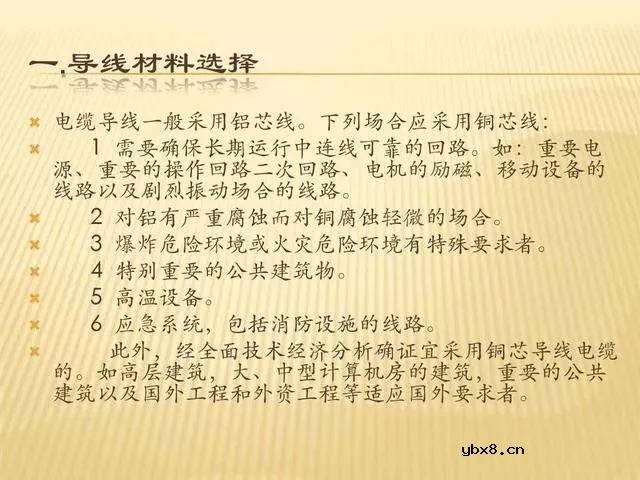 一.导线材料选择
电缆导线一般采用铝芯线。下列场合应采用铜芯线：
1 需要确保长期运行中连线可靠的回路。如：重要电
源、重要的操作回路二次回路、电机的励磁、移动设备的
线路以及剧烈振动场合的线路。
2 对铝有严重腐蚀而对铜腐蚀轻微的场合。
3 爆炸危险环境或火灾危险环境有特殊要求者。
4 特别重要的公共建筑物。
5 高温设备。
6 应急系统，包括消防设施的线路。
此外，经全面技术经济分析确证宜采用铜芯导线电缆
的。如高层建筑，大、中型计算机房的建筑，重要的公共
建筑以及国外工程和外资工程等适应国外要求者。
ybx8.cn